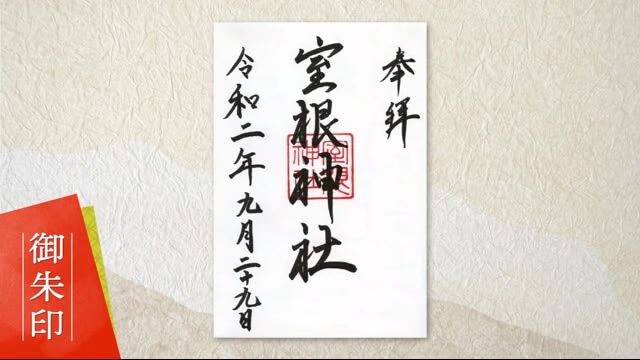 奉拝
室根神社
令和二年九月二十九日
室根
神社
御朱印